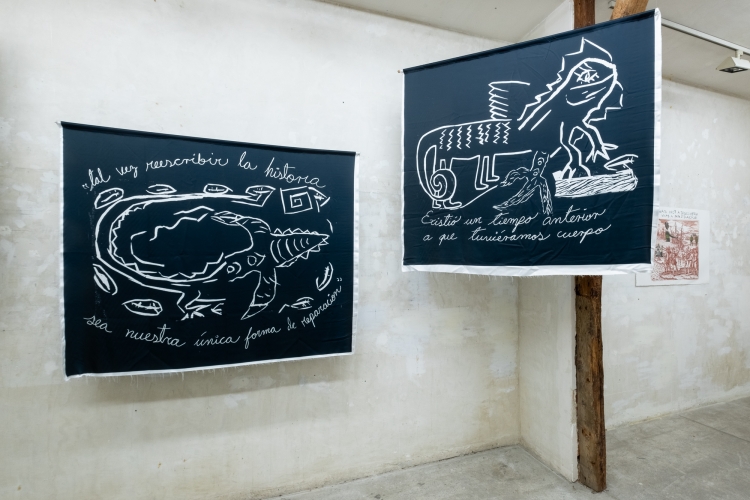 "tal vez reescribir la historia
sea nuestra única forma de reparación"
Existió un tiempo anterior
a que tuviéramos cuerpo